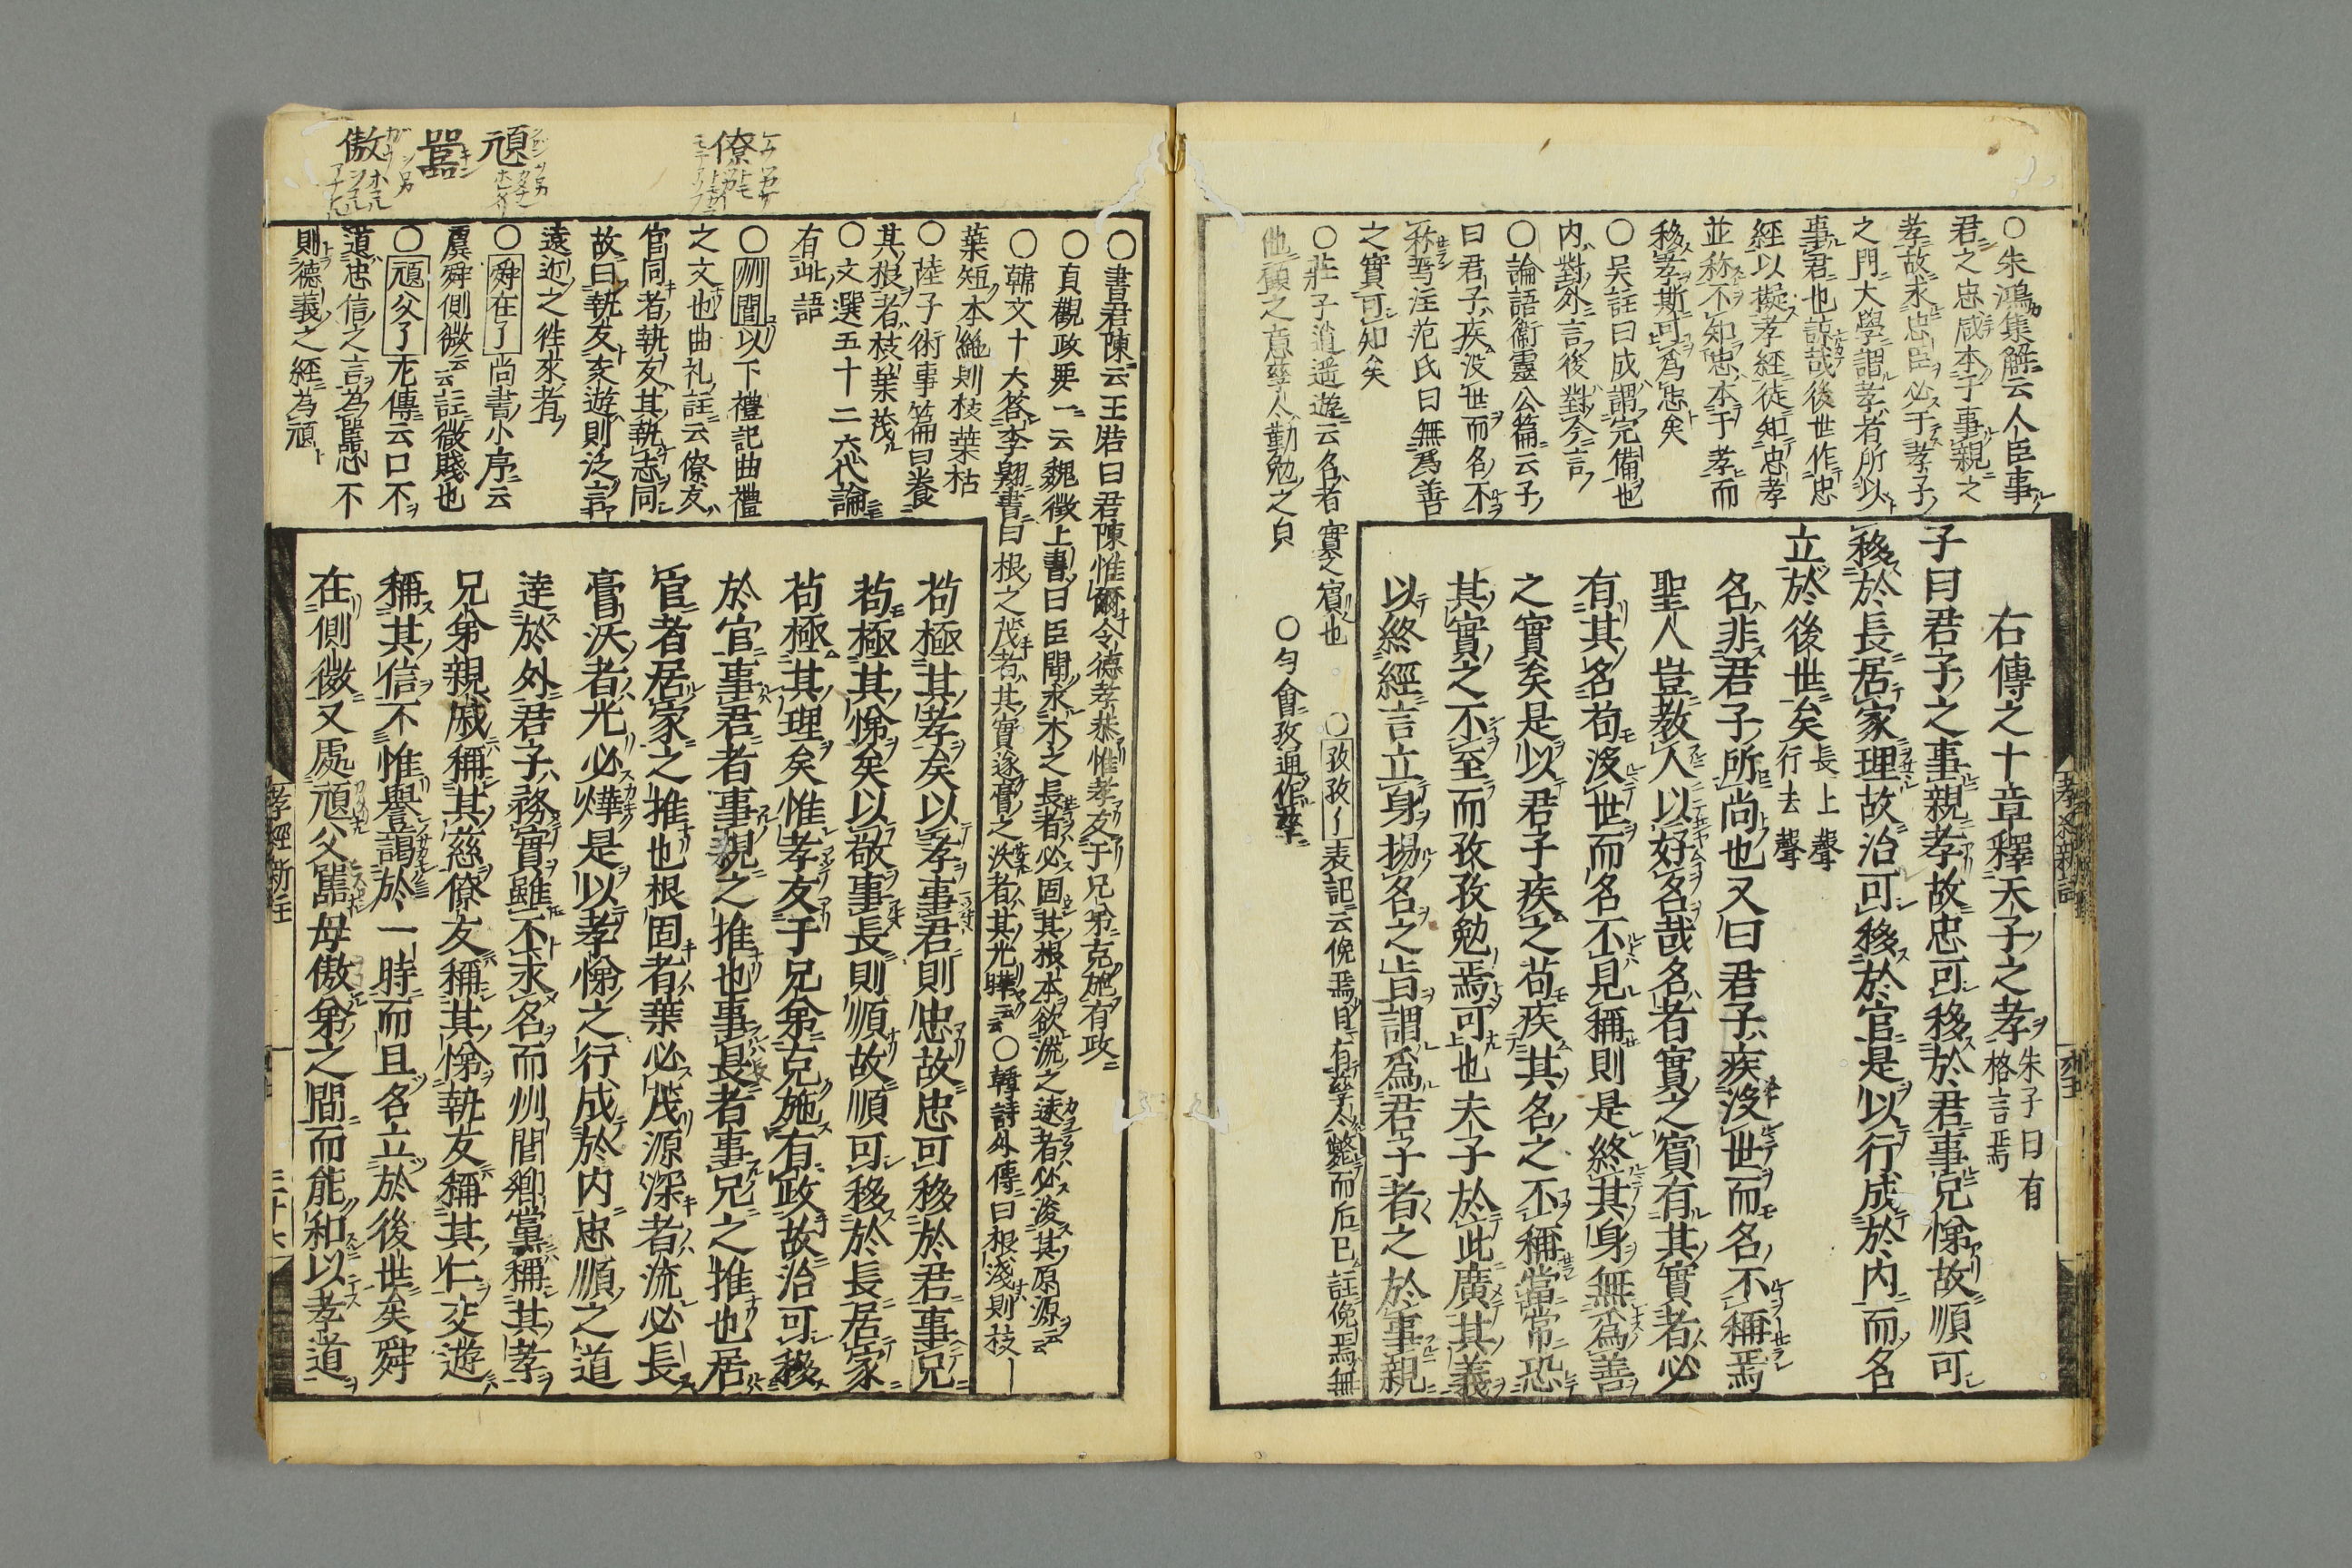 ○朱鴻集解云人臣事
君之忠咸本于事親之
孝故求忠臣必于孝子
之門大學謂孝者所以
事君也諒哉後世作忠
經以擬孝經徒知忠孝
並称不知忠本于孝而
移孝斯可爲忠矣
○吴註曰成謂完備也
内對外言後對今言
○論語衞靈公篇云子
曰君子疾没世而名不
称焉注范氏曰無爲善
之實可知矣
○莊子逍遥遊云名者實之賓也
○孜孜了表記云俛焉日有孳々斃而后已註俛焉無
他顧之意孳々勤勉之皃
○匀會孜通作孳
右傳之十章釋天子之孝
朱子曰有
格言焉
子曰君子之事親孝故忠可移於君事兄悌故順可
移於長居家理故治可移於官是以行成於内而名
立於後世矣
長上聲
行去聲
名非君子所尚也又曰君子疾沒世而名不稱焉
聖人豈教人以好名哉名者實之賓有其實者必
有其名苟沒世而名不見稱則是終其身無爲善
之實矣是以君子疾之苟疾其名之不稱當常恐
其實之不至而孜孜勉焉可也夫子於此廣其義
以終經言立身揚名之旨謂爲君子者之於事親
孝經新註
○書君陳云王若曰君陳惟爾令德孝恭惟孝友于兄弟克施有政
○貞觀政要一云魏徴上書曰臣聞求木之長者必固其根本欲流之遠者必浚其原源云云
○韓文十六答李翺書曰根之茂者其實遂膏之沃者其光曄云云
○韓詩外傳曰根淺則枝
葉短本絶則枝葉枯
○陸子術事篇曰養
其根者枝葉茂
○文選五十二六代論
有此語
○州閭以下禮記曲禮
之文也曲礼註云僚友
官同者執友其執志同
故曰執友交遊則泛言
遠近之徃來者
○舜在了尚書小序云
虞舜側微云云註微賤也
○頑父了左傳云口不
道忠信之言為嚚心不
則德義之經為頑
僚
頑
嚚
傲
苟極其孝矣以孝事君則忠故忠可移於君事兄
苟極其悌矣以敬事長則順故順可移於長居家
苟極其理矣惟孝友于兄弟克施有政故治可移
於官事君者事親之推也事長者事兄之推也居
官者居家之推也根固者葉必茂源深者流必長
膏沃者光必燁是以孝悌之行成於内忠順之道
達於外君子務實雖不求名而州閭鄉黨稱其孝
兄弟親戚稱其慈僚友稱其悌執友稱其仁交遊
稱其信不惟譽謁於一時而且名立於後世矣舜
在側微又處頑父嚚母傲弟之間而能和以孝道
孝經新註
三十六